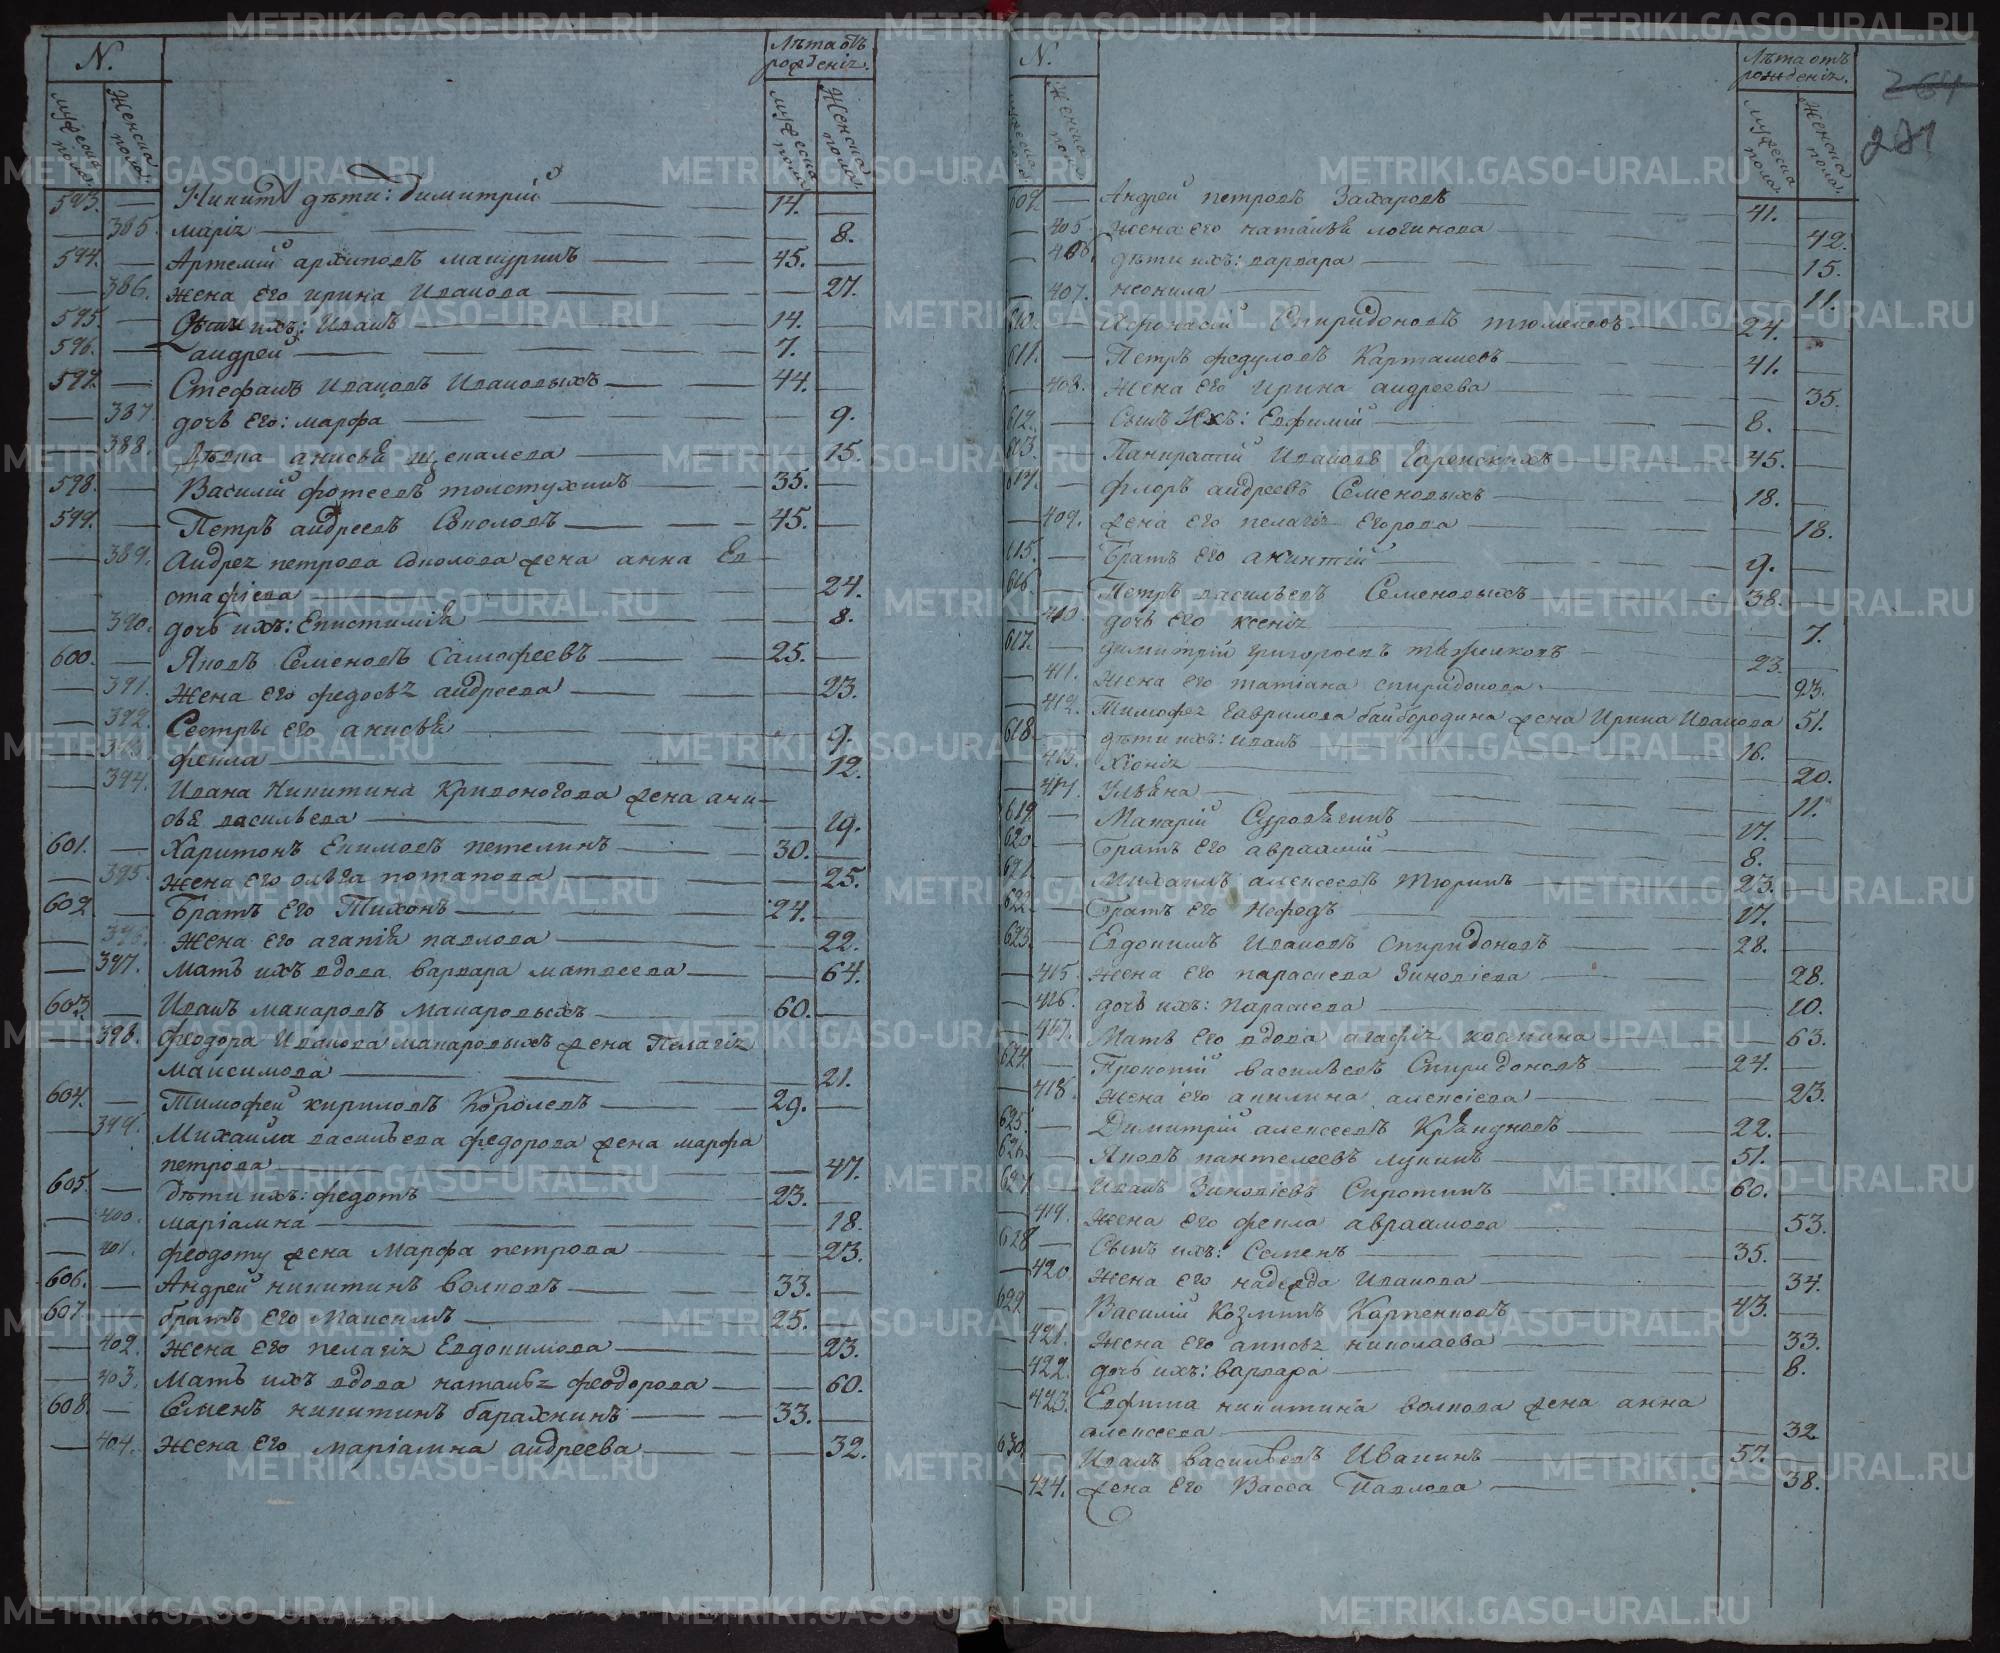 N.
Лѣта отъ рожденія.
мужеска пола.
Женска пола.
мужеска пола
Женска пола.
593. — Никиты дѣти: Димитрій — 14. —
— 385. марія — — 8.
594. — Артемій архиповъ мачуринъ — 45. —
— 386. жена его ирина Иванова — — 27.
595. — Дѣти ихъ: Иванъ — 14. —
596. — андрей — 7. —
597. — Стефанъ Ивановъ Ивановыхъ — 44. —
— 387. дочь его: марфа — — 9.
— 388. Дѣвка анисья щепалева — — 15.
598. — Василій фотеевъ толстухинъ — 35. —
599. — Петръ андреевъ Соколовъ — 45. —
— 389. Андрея петрова соколова жена анна Ев-
стафіева — — 24.
— 390. дочь ихъ: Епистимія — — 8.
600. — Яковъ Семеновъ Самофеевъ — 25. —
— 391. жена его федосья андреева — — 23.
— 392. Сестры его анисья — — 9.
— 393. фекла — — 12.
— 394. Ивана Никитина Кривоногова жена ани-
сья васильева — — 19.
601. — Харитонъ Екимовъ петелинъ — 30. —
— 395. жена его ольга потапова — — 25.
602. — Братъ его Тихонъ — 24. —
— 396. жена его агапія павлова — — 22.
— 397. мать ихъ вдова варвара матвеева — — 64.
603. — Иванъ макаровъ макаровыхъ — 60. —
— 398. феодора Иванова макаровыхъ жена Пелагія
максимова — — 21.
604. — Тимофей кириловъ Королевъ — 29. —
— 399. Михаила васильева федорова жена марфа
петрова — — 47.
605. — Дѣти ихъ: федотъ — 23. —
— 400. маріамна — — 18.
— 401. феодоту жена Марфа петрова — — 23.
606. — Андрей никитинъ волковъ — 33. —
607. — братъ его Максимъ — 25. —
— 402. жена его пелагія Евдокимова — — 23.
— 403. мать ихъ вдова наталья феодорова — — 60.
608. — Семенъ никитинъ барахнинъ — 33. —
— 404. жена его маріамна андреева — — 32.
N.
Лѣта отъ рожденія.
Женска пола
мужеска пола.
Женска пола.
264
281
609. — Андрей петровъ Захаровъ — 41. —
— 405. жена его наталья логинова — — 42.
— 406. дѣти ихъ: варвара — — 15.
— 407. неонила — — 11.
610. — Афонасій Спиридоновъ тюменевъ — 24. —
611. — Петръ федуловъ Карташевъ — 41. —
— 408. жена его ирина андреева — — 35.
612. — Сынъ Ихъ: Евфимій — 8. —
613. — Панкратій Ивановъ Гаренскихъ — 45. —
614. — флоръ андреевъ Семеновыхъ — 18. —
— 409. жена его пелагія Егорова — — 18.
615. — Братъ его акинтій — 9. —
616. — Петръ васильевъ Семеновыхъ — 38. —
— 410. дочь его ксенія — — 7.
617. — димитрій григорьевъ тяжелковъ — 23. —
— 411. жена его татіана спиридонова — — 23.
— 412. Тимофея гаврилова байбородина жена Ирина Иванова 51.
618. — дѣти ихъ: иванъ — 16. —
— 413. хіонія — — 20.
— 414. Ульяна — — 11.
619. — Макарій Суровягинъ — 17. —
620. — братъ его авраамій — 8. —
621. — михаилъ алексеевъ тюринъ — 23. —
622. — братъ его Нефедъ — 17. —
623. — Евдокимъ Ивановъ спиридоновъ — 28. —
— 415. жена его параскева Зиновіева — — 28.
— 416. дочь ихъ: параскева — — 10.
— 417. Мать его вдова агафія козмина — — 63.
624. — Прокопій васильевъ Спиридоновъ — 24. —
— 418. жена его акилина алексіева — — 23.
625. — Димитрій алексеевъ — 22. —
626. — Яковъ пантелеевъ лукинъ — 51. —
627. — Иванъ Зиновіевъ Сиротинъ — 60. —
— 419. жена его фекла авраамова — — 53.
628 — Сынъ ихъ: Семенъ — 35. —
— 420. жена его надежда Иванова — — 34.
629. — Василій Козминъ Карпенковъ — 43. —
— 421. жена его анисья николаева — — 33.
— 422. дочь ихъ: варвара — — 8.
— 423. Евфима никитина волкова жена анна
алексеева — — 32
630. — Иванъ васильевъ Иванинъ — 57. —
— 424. жена его Васса Павлова — — 38.